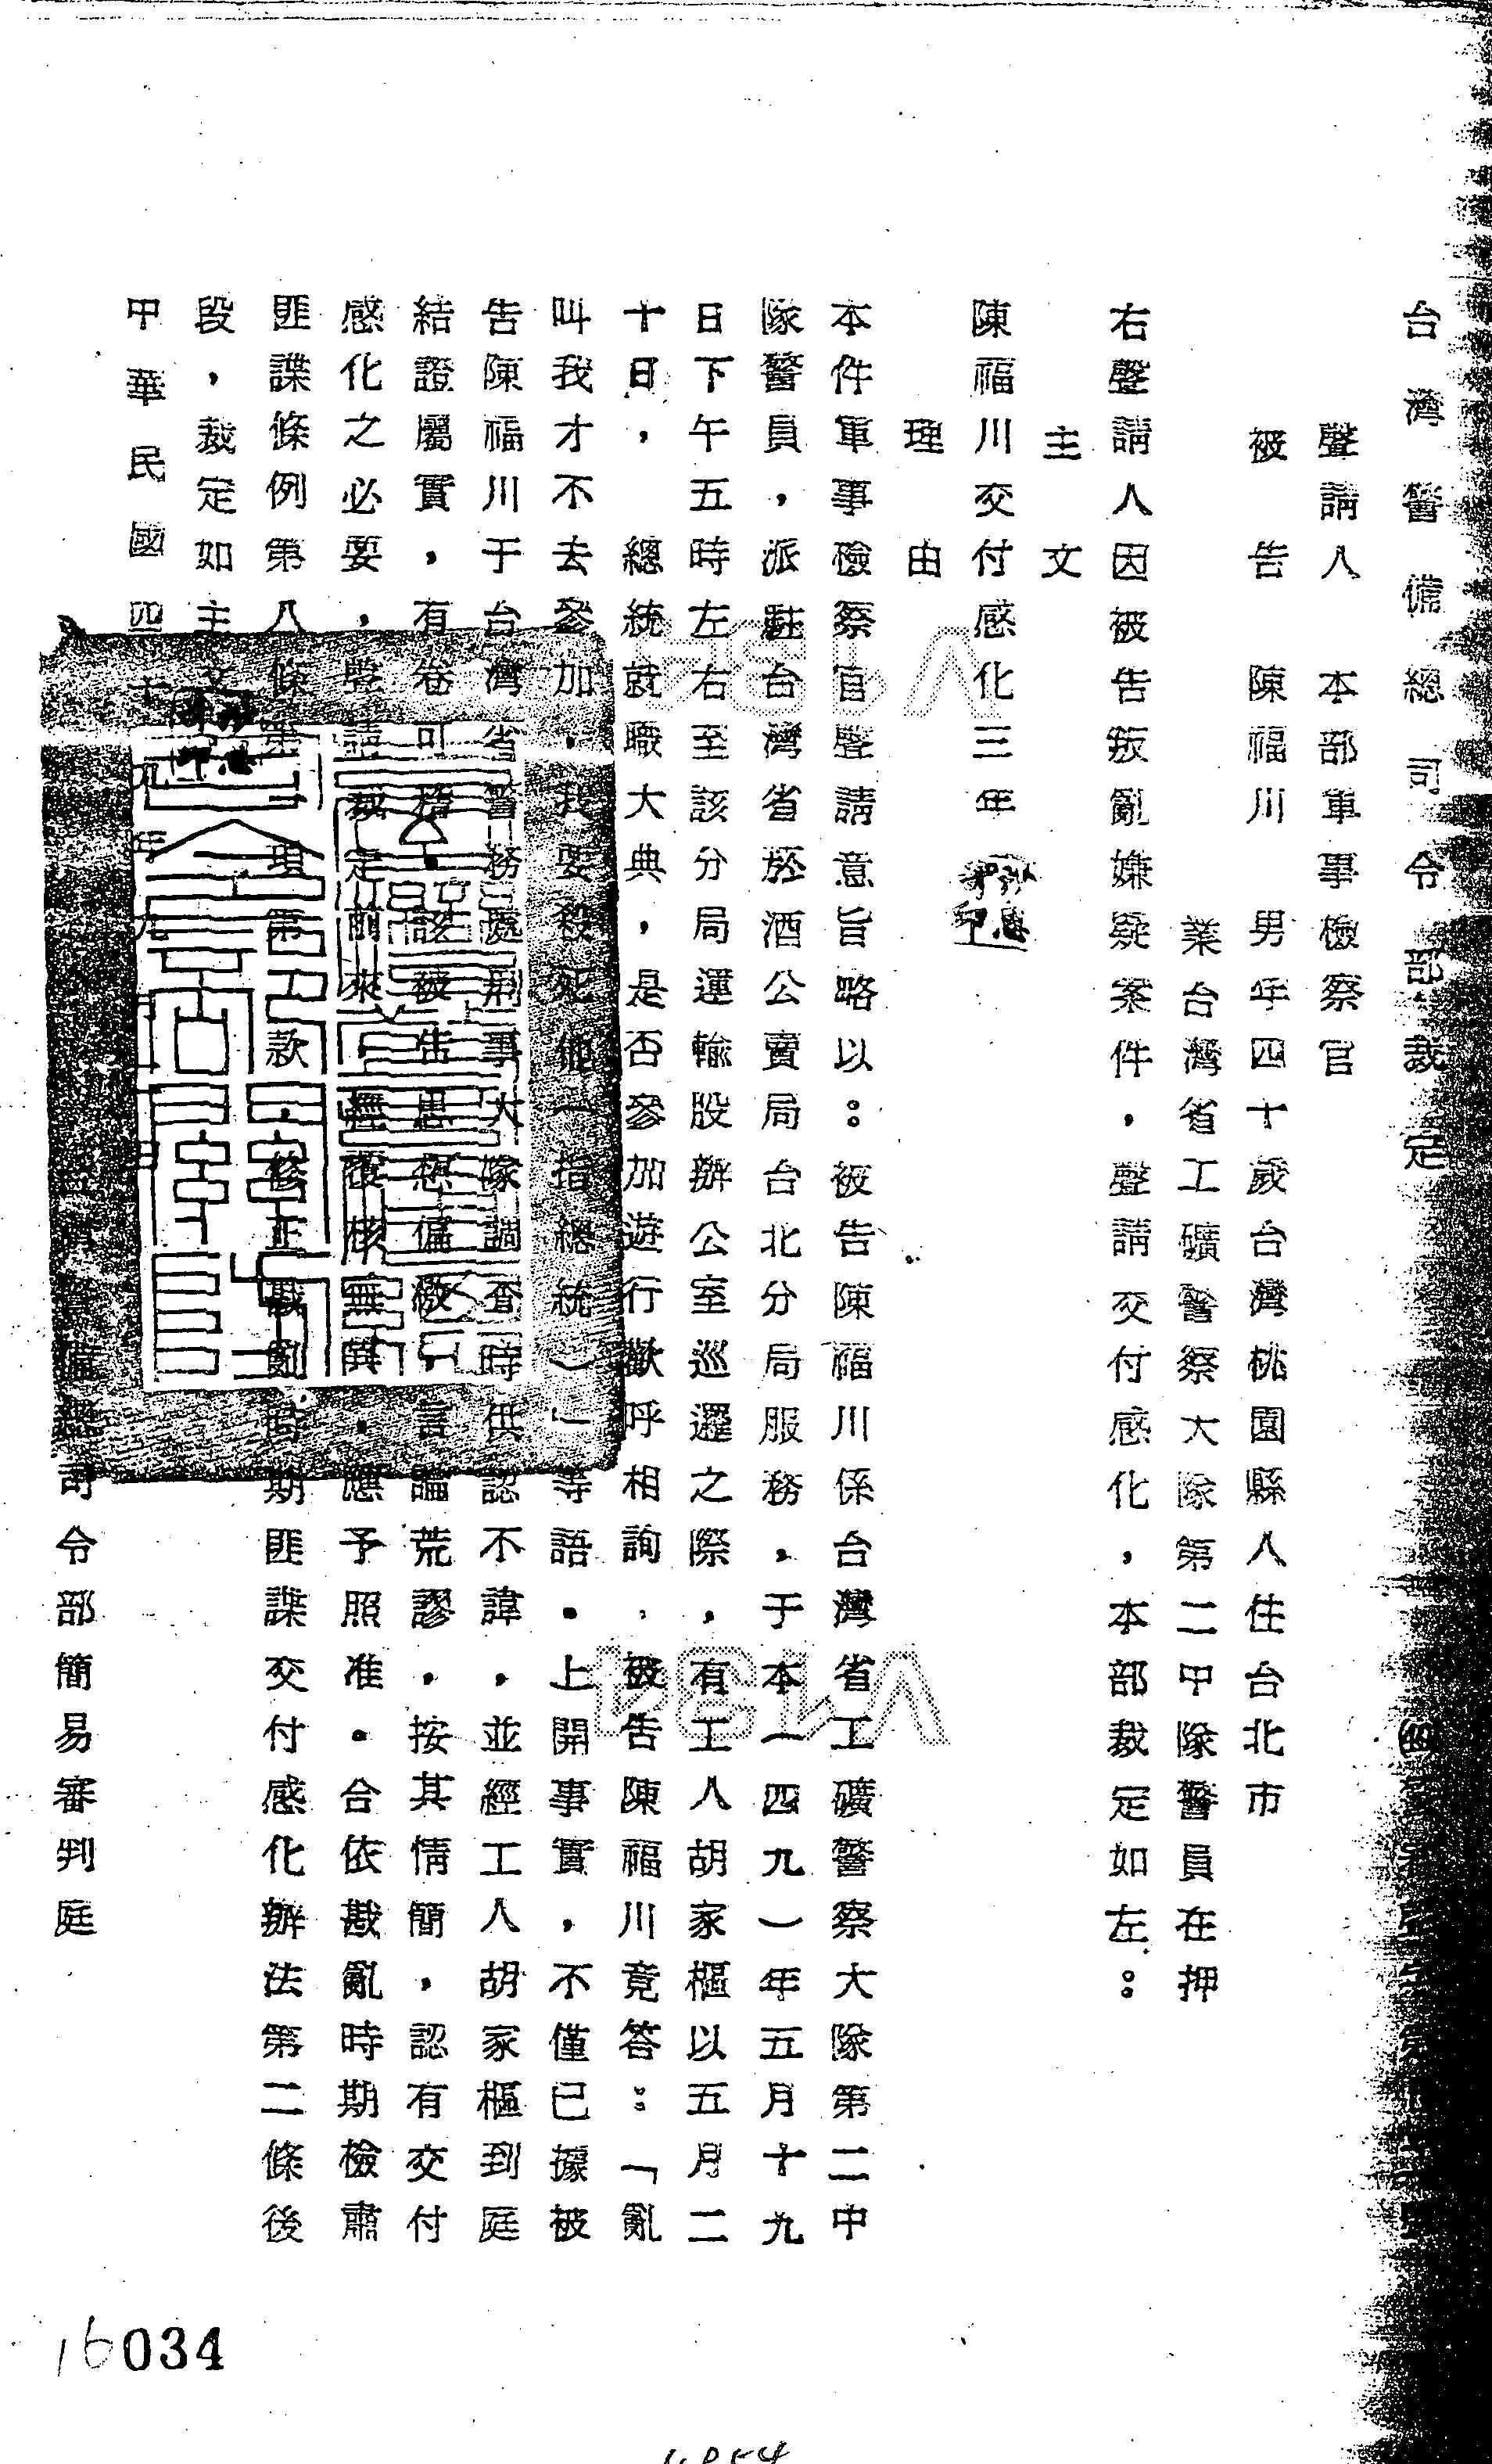 台灣警備總司令部裁定
聲請人　本部軍事檢察官
被告　陳福川　男年四十歲台灣桃園縣人住台北市
業台灣省工礦警察大隊第二中隊警員在押
右聲請人因被告叛亂嫌疑案件，聲請交付感化，本部裁定如左：
主文
陳福川交付感化三年
理由
本件軍事檢察官聲請意旨略以：被告陳福川係台灣省工礦警察大隊第二中
隊警員，派駐台灣省菸酒公賣局台北分局服務，于本（四九）年五月十九
日下午五時左右至該分局運輸股辦公室巡邏之際，有工人胡家樞以五月二
十日，總統就職大典，是否參加遊行歡呼相詢，被告陳福川竟答：「亂
叫我才不去參加，我要殺死他（指總統）」等語。上開事實，不僅已據被
告陳福川于台灣省警務處刑事大隊調查時供認不諱，並經工人胡家樞到庭
結證屬實，有卷可稽。該被告思想偏激，言論荒謬，按其情簡，認有交付
感化之必要，聲請裁定前來，經復核無異，應予照准。合依戡亂時期檢肅
匪諜條例第八條第一項第二款，修正戡亂時期匪諜交付感化辦法第二條後
段，裁定如主文
中華民國四十九年九月　日
司令部簡易審判庭
16034